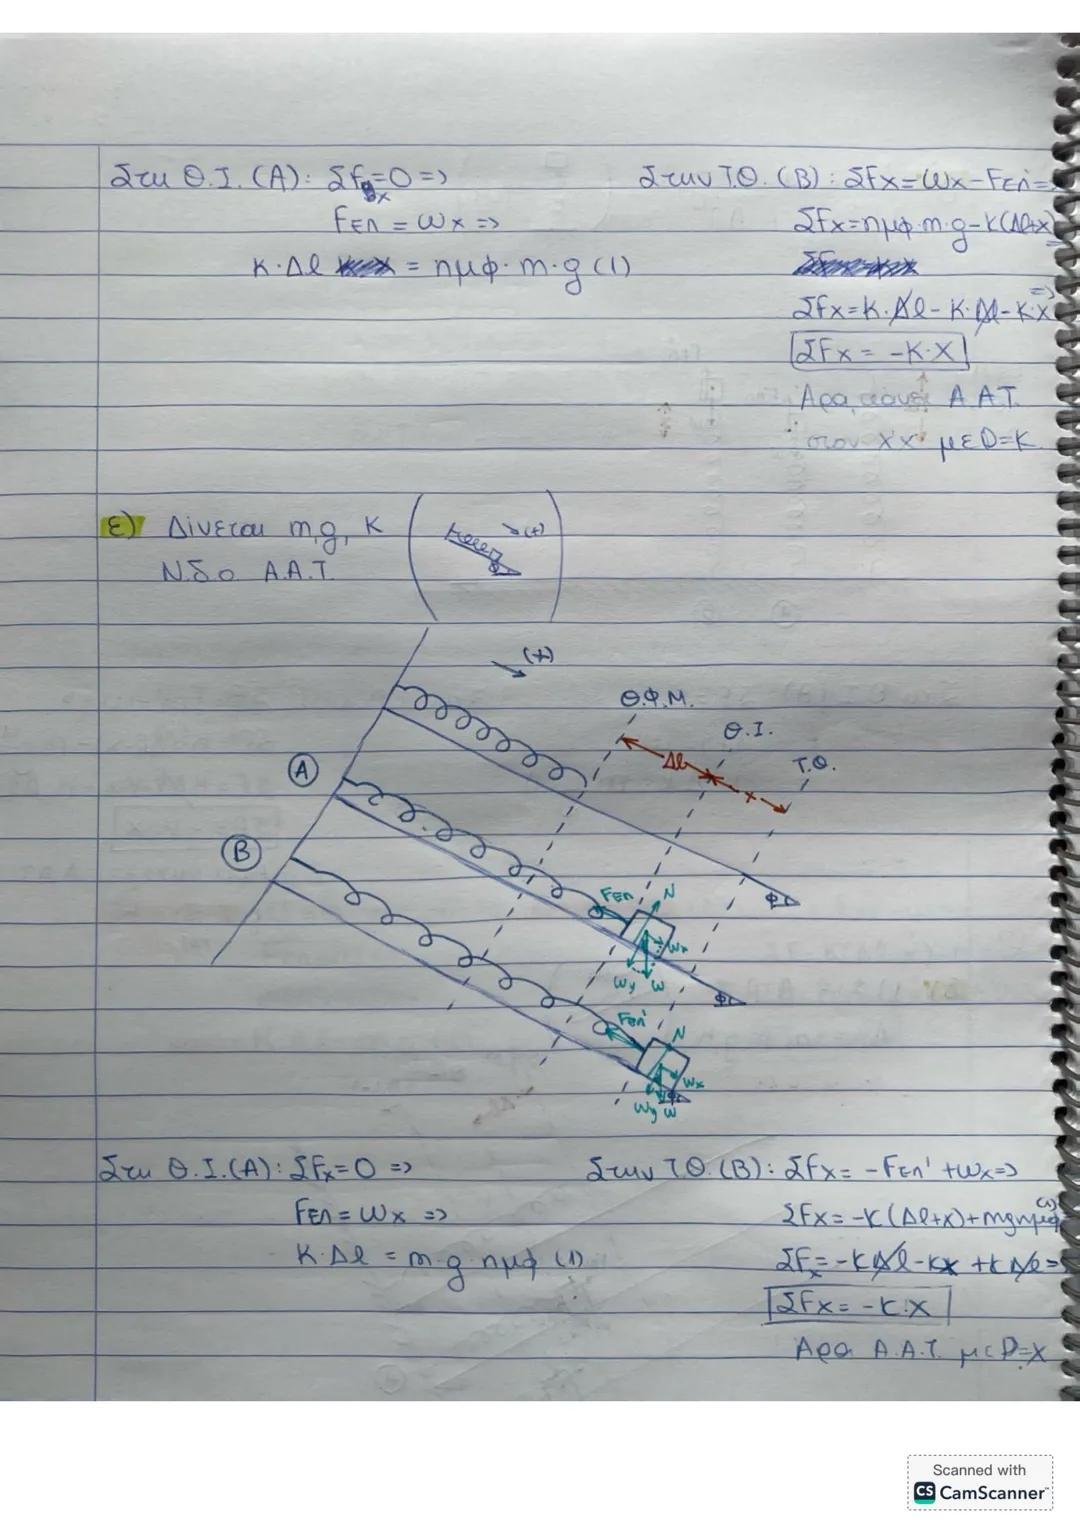 Στη Θ.Ι. (Α): ΣFx=0 =>
FΕΛ = Wx =>
K·Δl = ημφ·m·g (1)
Στην Τ.Θ. (Β): ΣFx=Wx-FΕΛ=>
ΣFx=ημφ·m·g-K(Δl+x)
=>
ΣFx=K·Δl-K·Δl-K·x
ΣFx = -K·X
Άρα, κάνει Α.Α.Τ.
στον xx' με D=K
ε) Δίνεται m,g, K
Ν.δ.ο. Α.Α.Τ.
(+)
φ
(+)
Θ.Φ.Μ.
Θ.Ι.
Τ.Θ.
Δl
x
Α
Β
φ
FΕΛ
N
Wx
Wy W
φ
FΕΛ'
N
Wx
Wy W
φ
Στη Θ.Ι.(Α): ΣFx=0 =>
FΕΛ=Wx =>
K·Δl = m·g·ημφ (1)
Στην Τ.Θ. (Β): ΣFx= -FΕΛ' +Wx=>
ΣFx= -K(Δl+x)+mgημφ (1)
ΣFx=-KΔl-Kx +KΔl=>
ΣFx= -K·X
Άρα Α.Α.Τ. με D=X
Scanned with
CS CamScanner